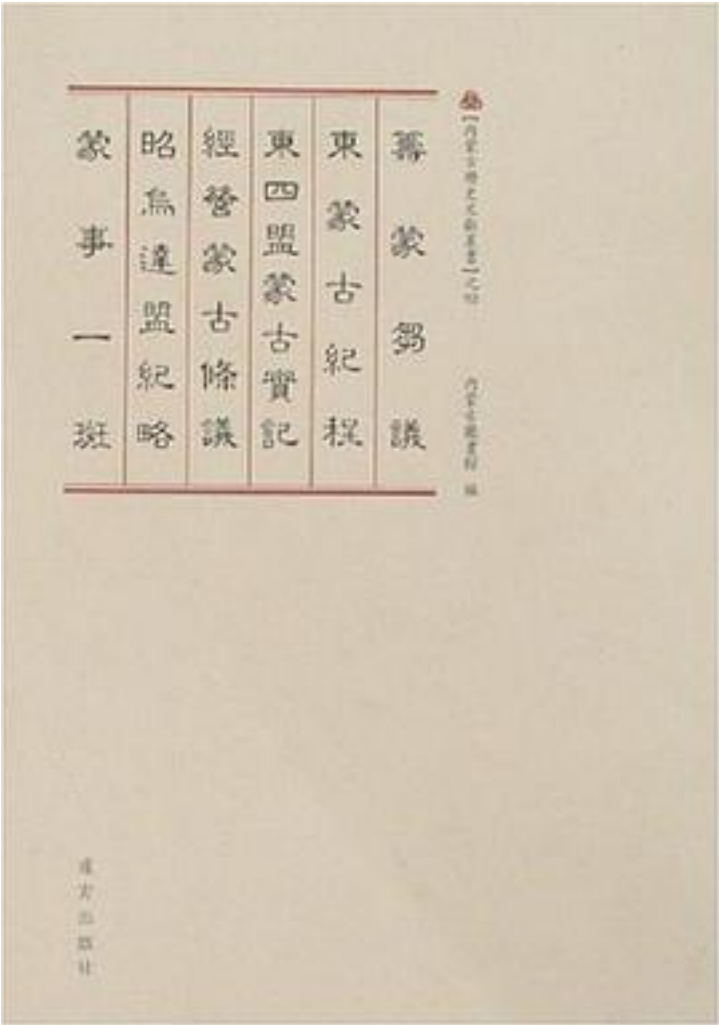 【内蒙古歷史文獻叢書】之
内蒙古圖書館 編
籌蒙芻議
東蒙古紀程
東四盟蒙古實記
經營蒙古條議
昭烏達盟紀略
蒙事一斑
遠方出版社